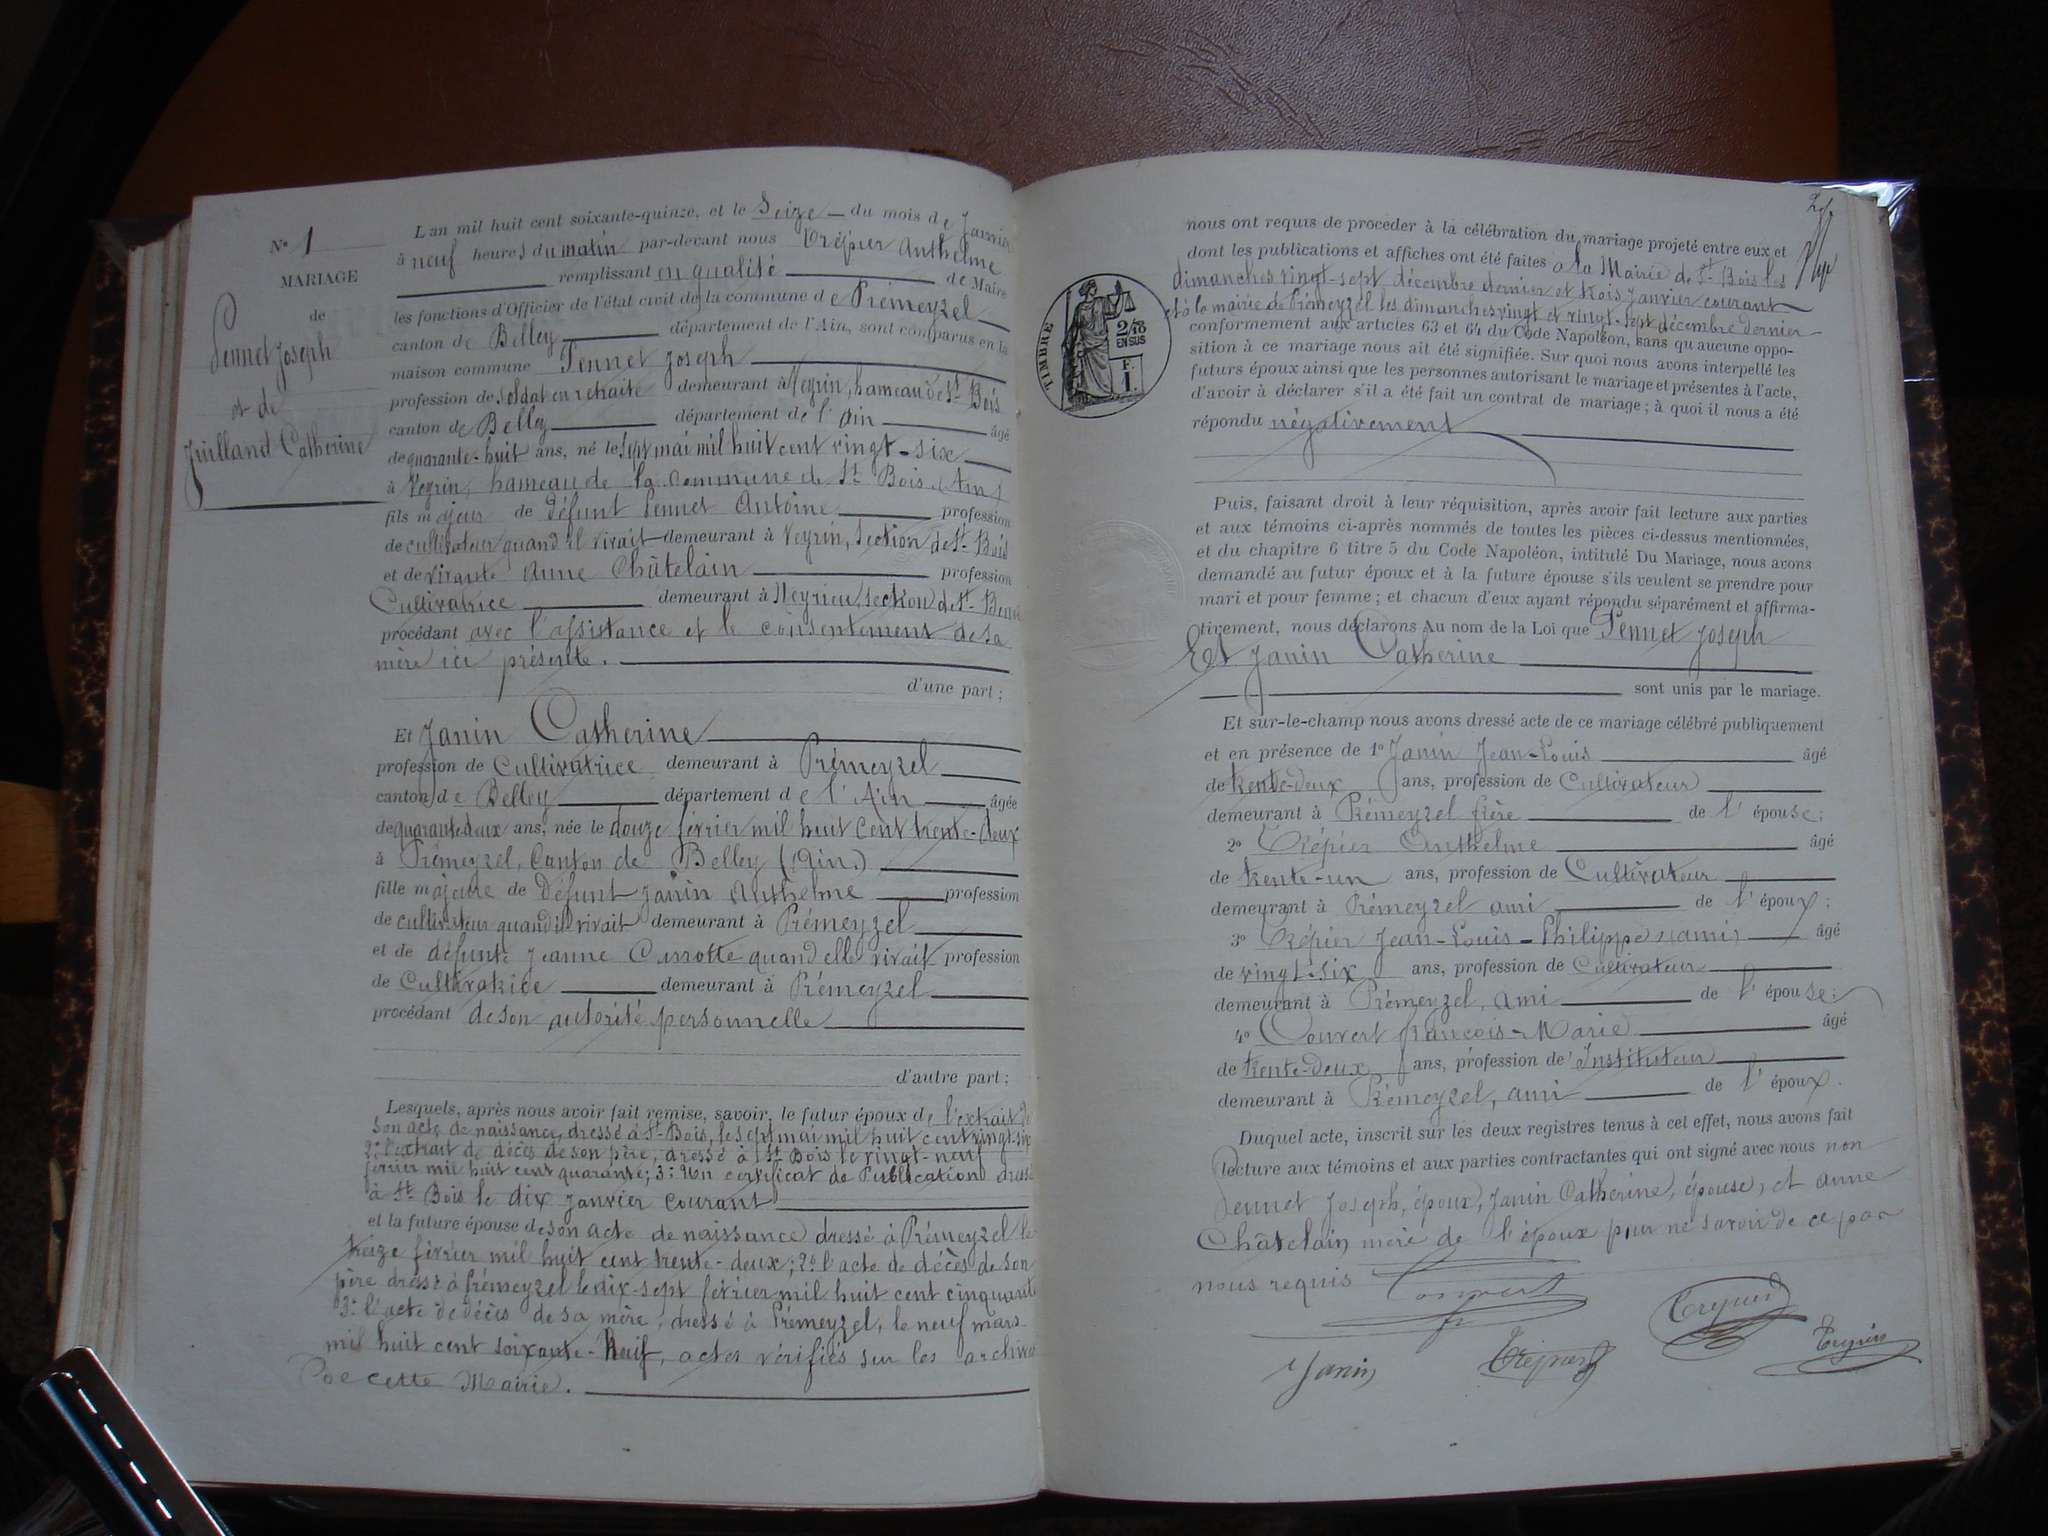 N° 1
MARIAGE
de
Pennet Joseph
et de
Juilland Catherine
L'an mil huit cent soixante-quinze, et le Seize du mois de Janvier
à neuf heures du matin par-devant nous Trépier Anthelme
remplissant en qualité de Maire
les fonctions d'Officier de l'état civil de la commune de Prémeyzel
canton de Belley département de l'Ain, sont comparus en la
maison commune Pennet Joseph
profession de soldat en retraite demeurant à Veyrin, hameau de St Bois
canton de Belley département de l'Ain âgé
de quarante-huit ans, né le sept mai mil huit cent vingt-six
à Veyrin, hameau de la commune de St Bois (Ain)
fils majeur de défunt Pennet Antoine profession
de cultivateur quand il vivait demeurant à Veyrin, section de St Bois
et de vivante Anne Châtelain profession
Cultivatrice demeurant à section de St
procédant avec l'assistance et le consentement de sa
mère ici présente.
d'une part ;
Et Janin Catherine
profession de Cultivatrice demeurant à Prémeyzel
canton de Belley département de l'Ain âgée
de quarante-deux ans, née le douze février mil huit cent trente-deux
à Prémeyzel, Canton de Belley (Ain)
fille majeure de défunt Janin Anthelme profession
de cultivateur quand il vivait demeurant à Prémeyzel
et de défunte Jeanne quand elle vivait profession
de Cultivatrice demeurant à Prémeyzel
procédant de son autorité personnelle
d'autre part ;
Lesquels, après nous avoir fait remise, savoir, le futur époux de l'extrait de
son acte de naissance, dressé à St Bois, le sept mai mil huit cent vingt-six
2° l'extrait de décès de son père, dressé à St Bois le vingt-neuf
février mil huit cent quarante ; 3° Un certificat de Publication dressé
à St Bois le dix Janvier courant
et la future épouse de son acte de naissance dressé à Prémeyzel le
treize février mil huit cent trente-deux ; 2° l'acte de décès de son
père dressé à Prémeyzel le dix-sept février mil huit cent cinquante
3° l'acte de décès de sa mère, dressé à Prémeyzel, le neuf mars
mil huit cent soixante-Neuf, actes vérifiés sur les archives
de cette Mairie.
nous ont requis de procéder à la célébration du mariage projeté entre eux et
dont les publications et affiches ont été faites à la Mairie de St Bois les
dimanches vingt-sept décembre dernier et trois janvier courant
et à la mairie de Prémeyzel les dimanches vingt et vingt-sept décembre dernier
conformement aux articles 63 et 64 du Code Napoléon, sans qu'aucune oppo-
sition à ce mariage nous ait été signifiée. Sur quoi nous avons interpellé les
futurs époux ainsi que les personnes autorisant le mariage et présentes à l'acte,
d'avoir à déclarer s'il a été fait un contrat de mariage ; à quoi il nous a été
répondu négativement
TIMBRE
2/10
EN SUS
F.
1.
Puis, faisant droit à leur réquisition, après avoir fait lecture aux parties
et aux témoins ci-après nommés de toutes les pièces ci-dessus mentionnées,
et du chapitre 6 titre 5 du Code Napoléon, intitulé Du Mariage, nous avons
demandé au futur époux et à la future épouse s'ils veulent se prendre pour
mari et pour femme ; et chacun d'eux ayant répondu séparément et affirma-
tivement, nous déclarons Au nom de la Loi que Pennet Joseph
Et Janin Catherine
sont unis par le mariage.
Et sur-le-champ nous avons dressé acte de ce mariage célébré publiquement
et en présence de 1° Janin Jean-Louis âgé
de trente-deux ans, profession de Cultivateur
demeurant à Prémeyzel frère de l'épouse ;
2° Trépier Anthelme âgé
de trente-un ans, profession de Cultivateur
demeurant à Prémeyzel ami de l'époux ;
3° Trépier Jean-Louis-Philippe (ami) âgé
de vingt-six ans, profession de Cultivateur
demeurant à Prémeyzel, ami de l'épouse ;
4° Convert François-Marie âgé
de trente-deux ans, profession de Instituteur
demeurant à Prémeyzel, ami de l'époux.
Duquel acte, inscrit sur les deux registres tenus à cet effet, nous avons fait
lecture aux témoins et aux parties contractantes qui ont signé avec nous non
Pennet Joseph, époux, Janin Catherine, épouse, et Anne
Châtelain, mère de l'époux pour ne savoir de ce par
nous requis
Convert
Trépier
Janin
Trépier
Trépier